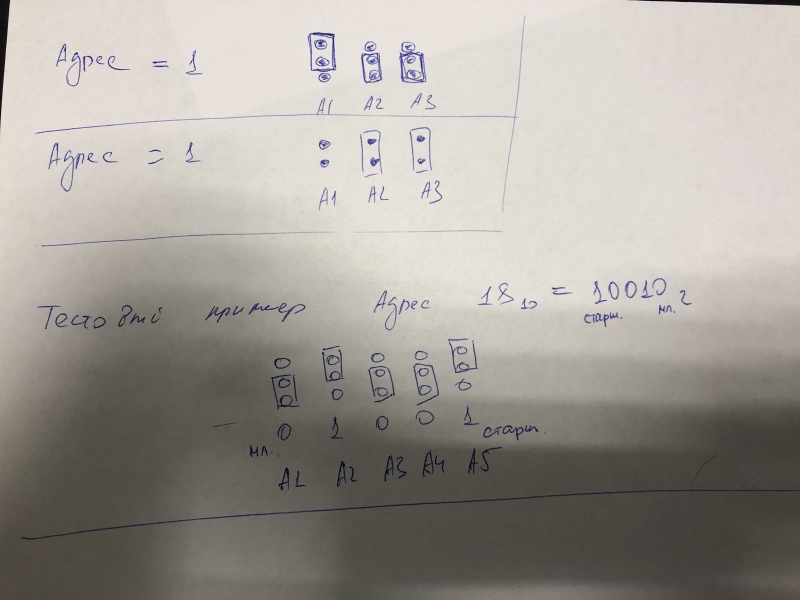 Адрес = 1
A1 A2 A3
Адрес = 1
A1 A2 A3
Тестовый пример Адрес 18₁₀ = 10010₂
старш. мл.
0 1 0 0 1 старш.
мл.
A1 A2 A3 A4 A5